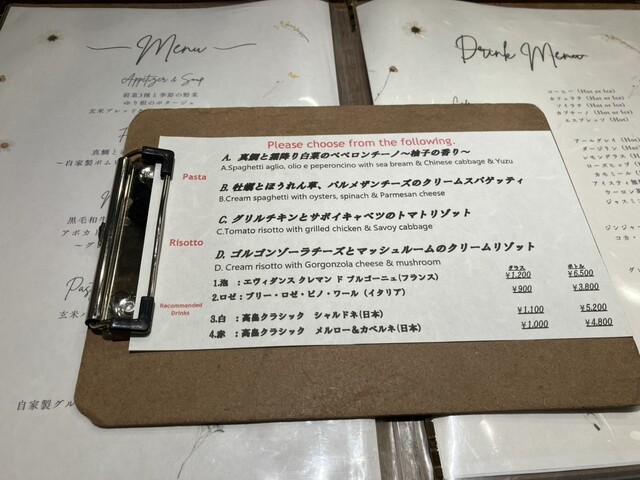 Menu
Appetizer & Soup
前菜3種と季節の野菜
ゆり根のポタージュ
玄米ブレッド
真鯛と
～自家製ポム
黒毛和牛
アボカ
～グ
Pas
玄米パ
自家製グル
Drink Menu
コーヒー (Hot or Ice)
カフェラテ (Hot or Ice)
ソイラテ (Hot or Ice)
カプチーノ (Hot or Ice)
エスプレッソ (Hot)
アールグレイ (Hot or Ice)
ダージリン (Hot or
レモングラス (Hot
ローズヒップ (Ho
カモミール (H
アイスティ無
ジャスミ
ジンジャー
コカ・
Please choose from the following.
Pasta
A. 真鯛と霜降り白菜のペペロンチーノ～柚子の香り～
A.Spaghetti aglio, olio e peperoncino with sea bream & Chinese cabbage & Yuzu
B. 牡蠣とほうれん草、パルメザンチーズのクリームスパゲッティ
B.Cream spaghetti with oysters, spinach & Parmesan cheese
Risotto
C. グリルチキンとサボイキャベツのトマトリゾット
C.Tomato risotto with grilled chicken & Savoy cabbage
D. ゴルゴンゾーラチーズとマッシュルームのクリームリゾット
D. Cream risotto with Gorgonzola cheese & mushroom
グラス ボトル
Recommended
Drinks
1.泡 : エヴィダンス クレマン ド ブルゴーニュ(フランス) ¥1,200 ¥6,500
2.ロゼ : ブリー・ロゼ・ピノ・ワール (イタリア) ¥900 ¥3,800
3.白 : 高畠クラシック シャルドネ(日本) ¥1,100 ¥5,200
4.赤 : 高畠クラシック メルロー＆カベルネ(日本) ¥1,000 ¥4,800